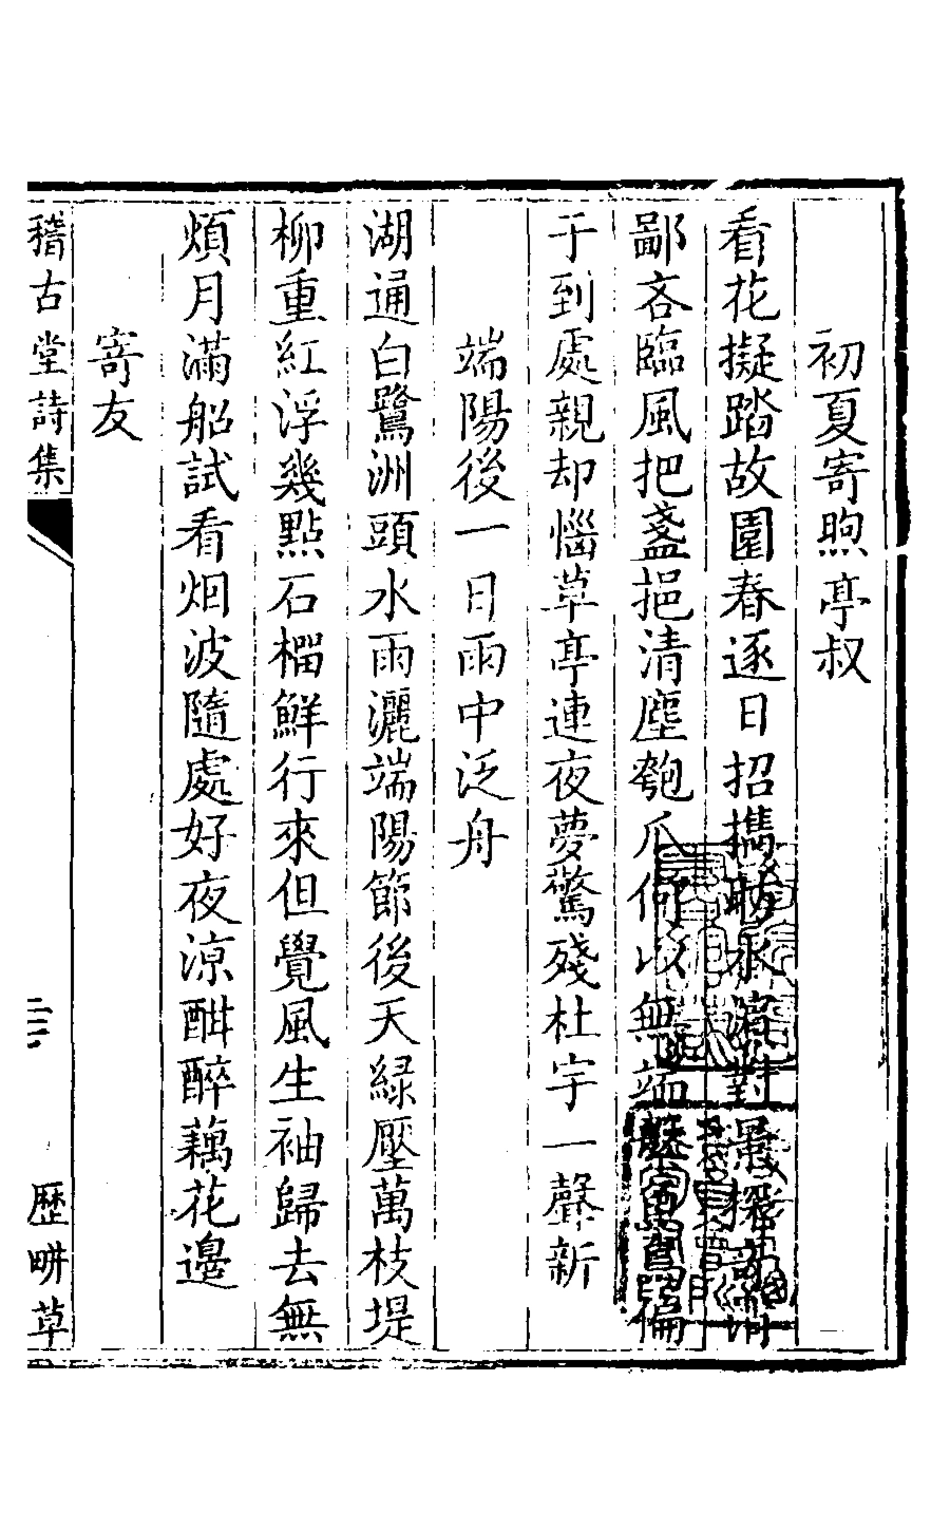 初夏寄煦亭叔
看花擬踏故園春逐日招攜眺水濱對景撰詩消
鄙吝臨風把盞挹清塵匏爪何以無 偏
于到處親却惱草亭連夜夢驚殘杜宇一聲新
端陽後一日雨中泛舟
湖通白鷺洲頭水雨灑端陽節後天綠壓萬枝堤
柳重紅浮幾點石榴鮮行來但覺風生袖歸去無
煩月滿船試看烟波隨處好夜涼酣醉藕花邊
寄友
稽古堂詩集
三
歷畊草